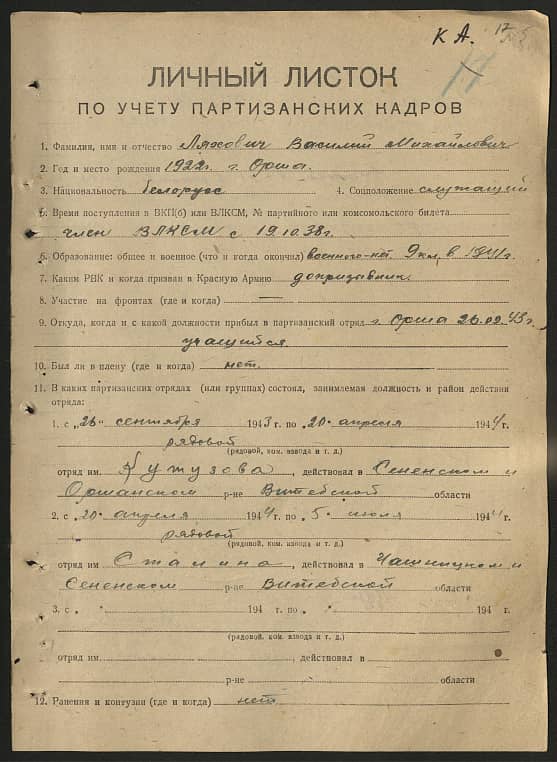 К А. 17
17
ЛИЧНЫЙ ЛИСТОК
ПО УЧЕТУ ПАРТИЗАНСКИХ КАДРОВ
1. Фамилия, имя и отчество Ляхович Василий Михайлович
2. Год и место рождения 1922г. г. Орша.
3. Национальность белорус 4. Соцположение служащий
5. Время поступления в ВКП(б) или ВЛКСМ, № партийного или комсомольского билета
член ВЛКСМ с 19.10.38г.
6. Образование: общее и военное (что и когда окончил) военного-нет. 9 кл. в 1941г.
7. Каким РВК и когда призван в Красную Армию допризывник
8. Участие на фронтах (где и когда) —
9. Откуда, когда и с какой должности прибыл в партизанский отряд г. Орша 26.09.43г.
учащийся.
10. Был ли в плену (где и когда) нет.
11. В каких партизанских отрядах (или группах) состоял, занимаемая должность и район действия
отряда:
1. с „26“ сентября 1943 г. по „20“ апреля 1944 г.
рядовой
(рядовой, ком. взвода и т. д.)
отряд им. Кутузова, действовал в Сененском и
Оршанском р-не Витебской области
2. с „20“ апреля 1944 г. по „5“ июля 1944 г.
рядовой
(рядовой, ком. взвода и т. д.)
отряд им. Сталина, действовал в Чашницком и
Сененском р-не Витебской области
3. с „ “ 194 г. по „ “ 194 г.
(рядовой, ком. взвода и т. д.)
отряд им. , действовал в
р-не области
12. Ранения и контузии (где и когда) нет